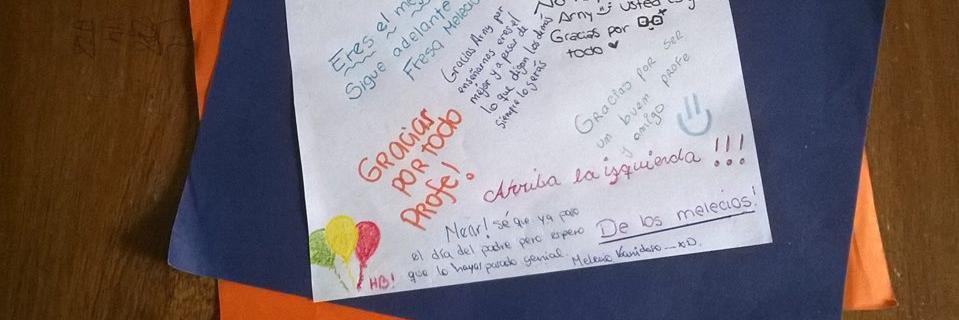 Eres el
Sigue adelante
Fresa
Gracias Arny por
enseñarnos eres el
mejor y a pesar de
lo que digan los demás
siempre lo serás
Arny usted
Gracias por
todo
Gracias por ser
un buen profe
y amigo
Gracias
por todo
Profe!
Arriba la izquierda !!!
Near! sé que ya paso
el día del padre pero espero
que lo hayas pasado genial.
xD.
De los melecios!
HB!